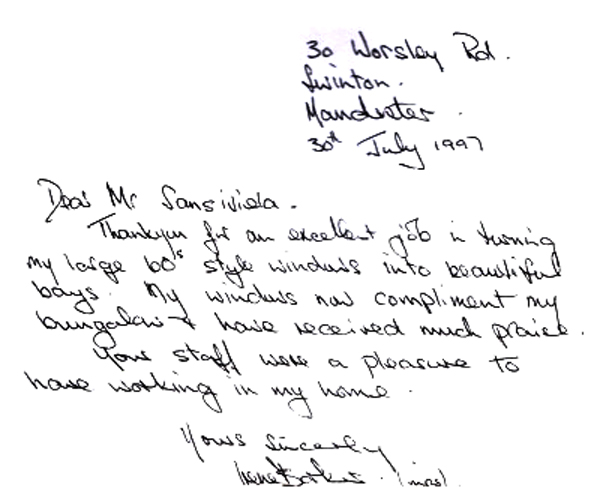 30 Worsley Rd.
Swinton.
Manchester.
30th July 1997
Dear Mr Sansiviela.
Thankyou for an excellent job in turning
my large 60's style windows into beautiful
bays. My windows now compliment my
bungalow & have received much praise.
Your staff were a pleasure to
have working in my home.
Yours sincerely
Irene (mrs).